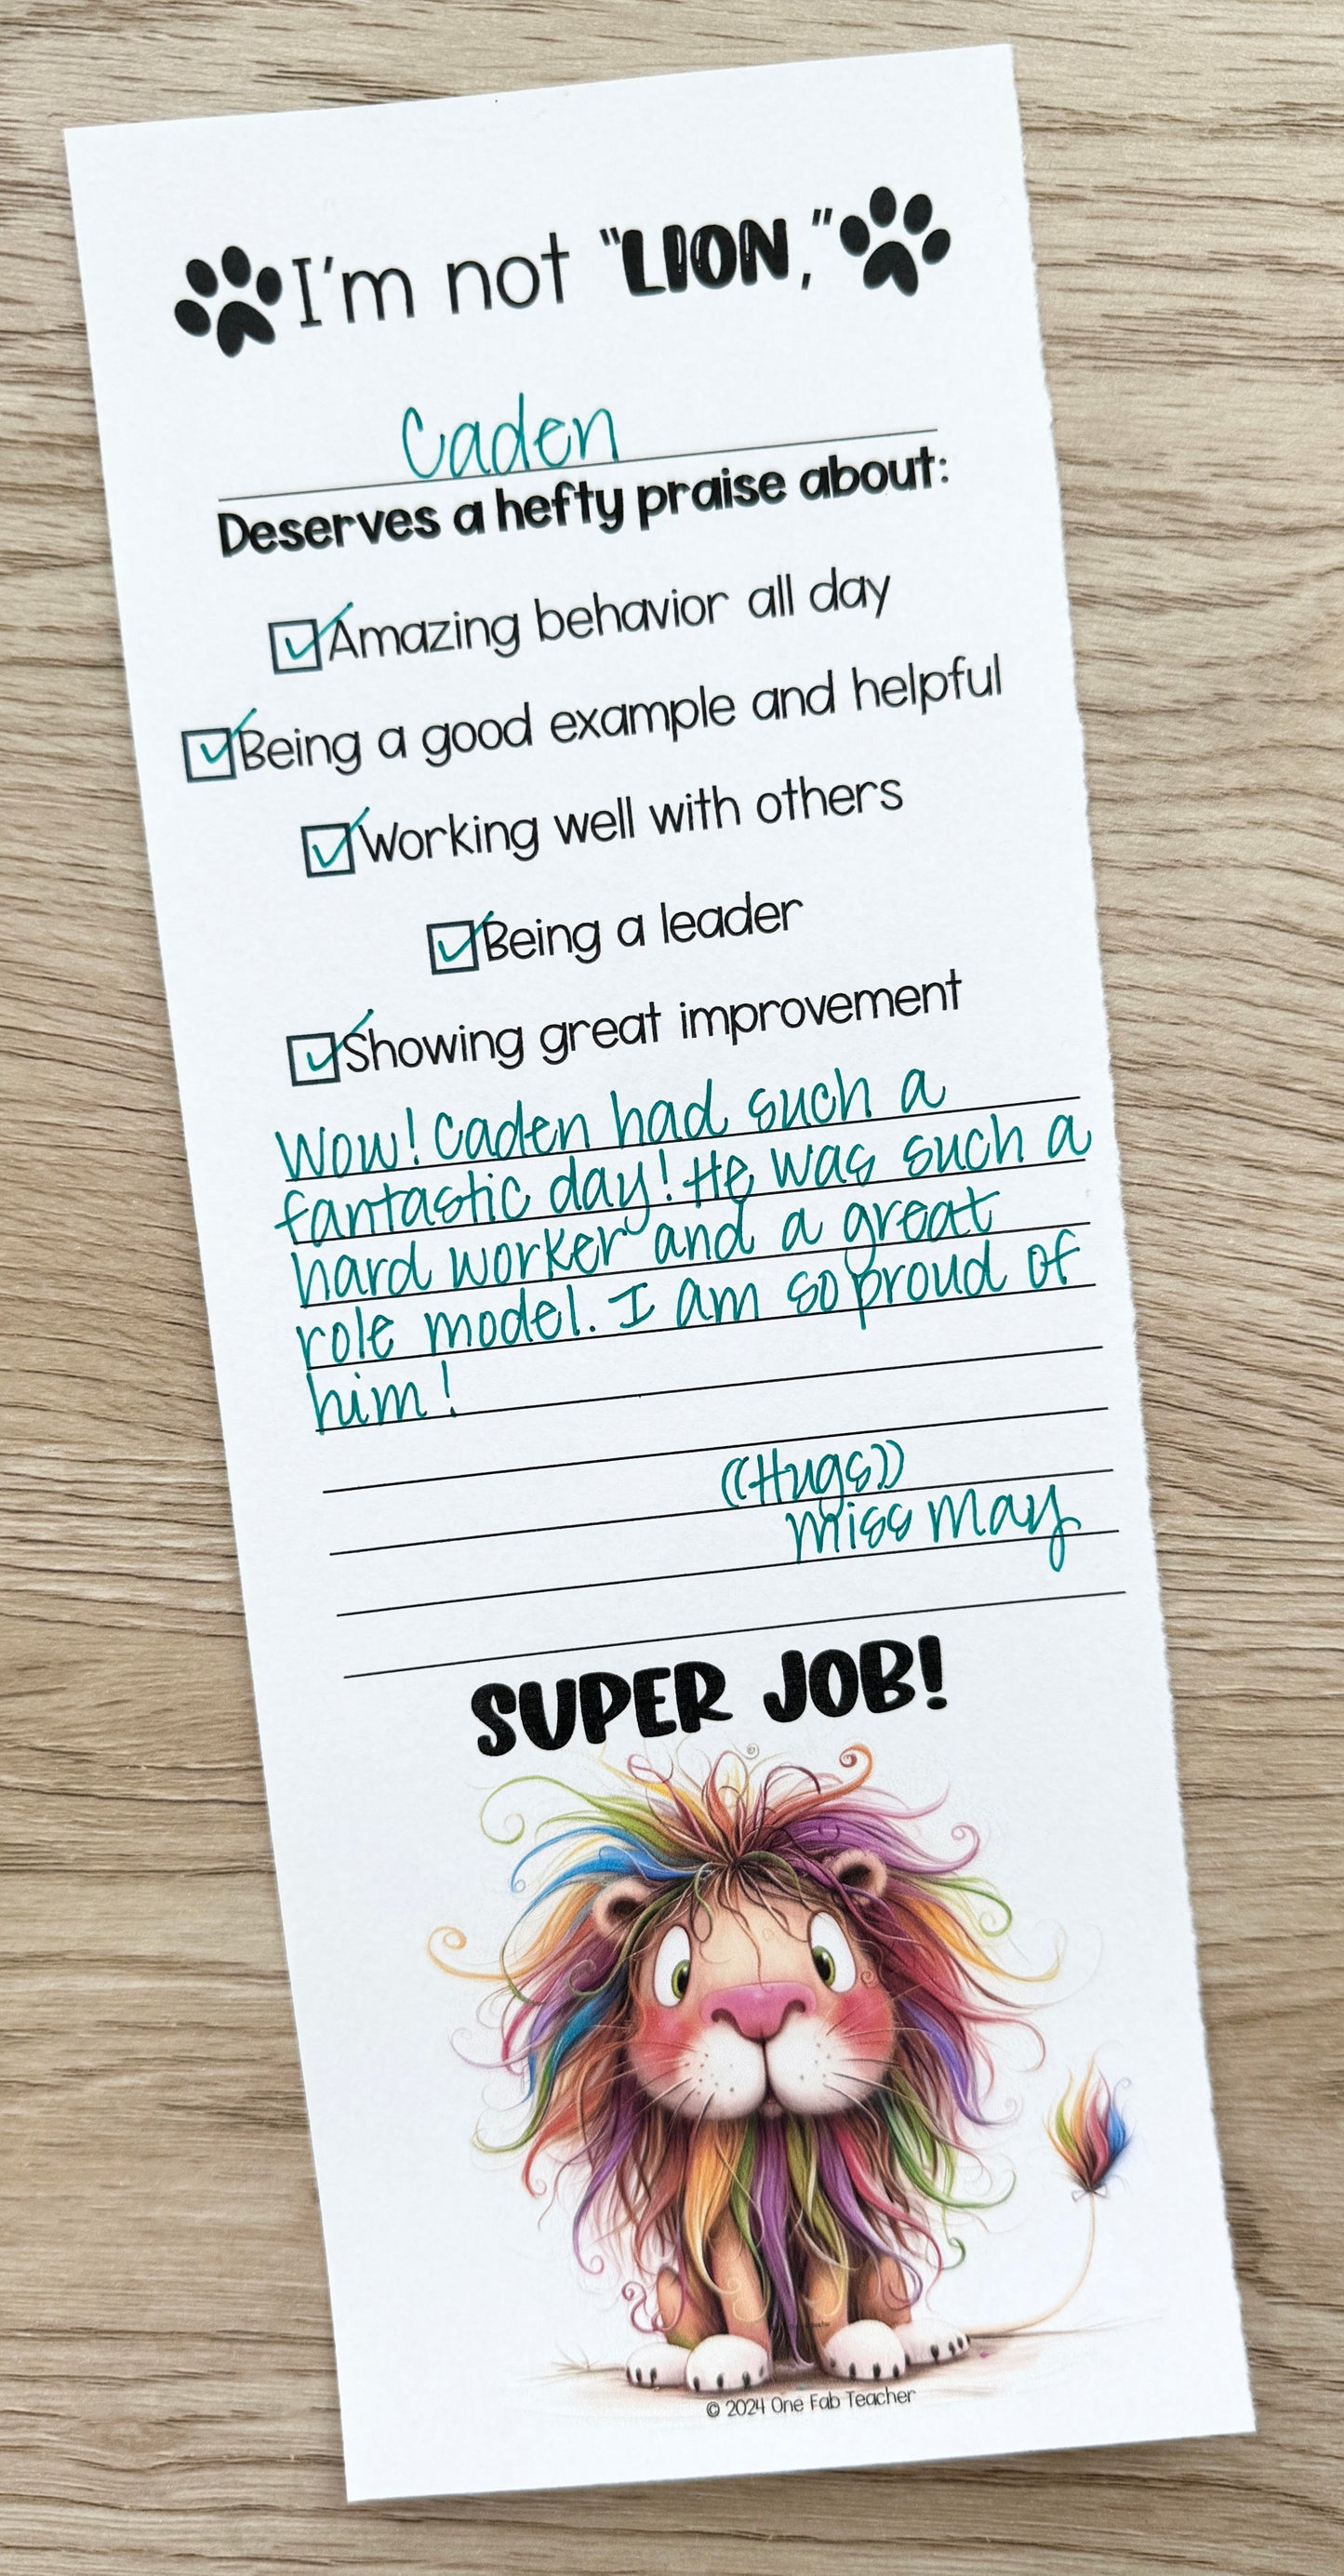 I'm not "LION,"
Caden
Deserves a hefty praise about:
☑Amazing behavior all day
☑Being a good example and helpful
☑Working well with others
☑Being a leader
☑Showing great improvement
Wow! Caden had such a
fantastic day! He was such a
hard worker and a great
role model. I am so proud of
him!
((Hugs))
Miss May
SUPER JOB!
© 2024 One Fab Teacher